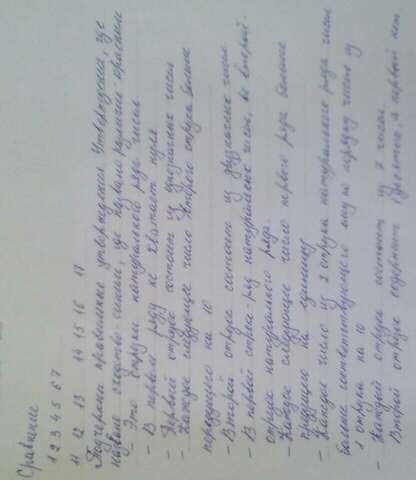 Сравнение
1 2 3 4 5 6 7
11 12 13 14 15 16 17
Подчеркни правильные утверждения. Утверждения, где
назвали сходство - синим, где назвали различие - красным
- Это отрезки натурального ряда чисел.
- В первом ряду не хватает нуля
- Первый отрезок состоит из однозначных чисел
- Каждое следующее число второго отрезка больше
передущего на 10
- Второй отрезок состоит из двузначных чисел
- В первой строке ряд натуральных чисел, во второй -
отрезок натурального ряда.
- Каждое следующее число первого ряда больше
предущего на единицу
- Каждое число из 2 отрезка натурального ряда чисел
больше соответствующего ему по порядку числа из
1 отрезка на 10
- Каждый отрезок состоит из 7 чисел
- Второй отрезок содержит десяток, а первый нет.